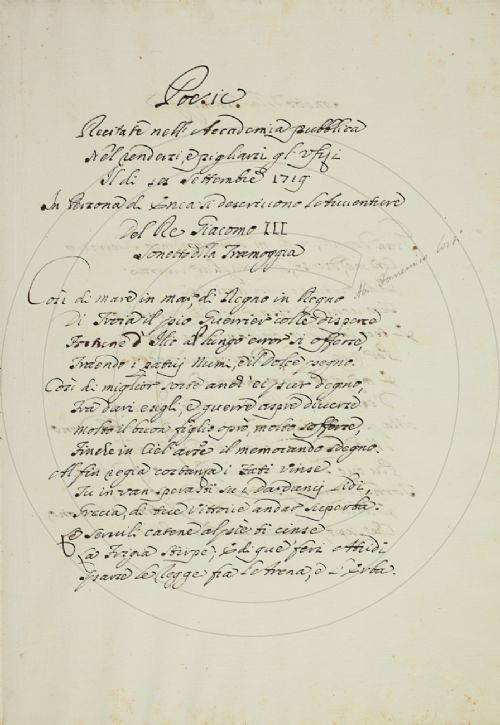 Poesie
Recitate nell' Accademia pubblica
Nel rendersi, e pigliarsi gl' Ufizi
Il dì Settembre 1719
In Persona di Enea si descrivono le Avventure
Del Re Giacomo III
Sonetto della Tramoggia
Così di mare in mar, di Regno in Regno
Di Troia il pio Guerrier colle disperse
Fortune d' Ilio al lungo error si offerse,
Traendo i patrij Numi, e il dolce pegno.
Così di miglior sorte andò ei pur degno,
Tra duri esigli, e guerre aspre diverse
Molto il buon figlio oprò, molto sofferse,
Finché in Ciel arse il memorando sdegno.
Al fin regia costanza i Fati vinse.
Tu in van sperasti su i Dardanij Lidi,
Grecia, di tue Vittorie andar superba.
E servili catene al piè ti cinse
La Frigia Stirpe, e di que' feri Atridi
Sparse le legge fia le Arena, e l' Erba.
Ab: Domenico